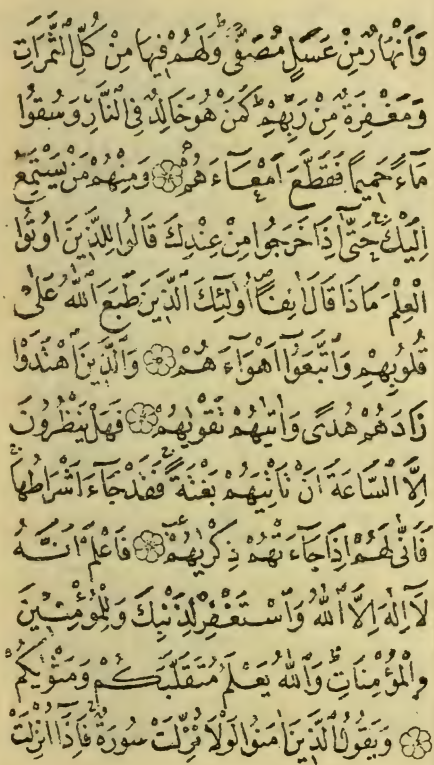 وَاَنْهَارٌ مِنْ عَسَلٍ مُصَفًّى وَلَهُمْ فِيهَا مِنْ كُلِّ الثَّمَرَاتِ
وَمَغْفِرَةٌ مِنْ رَبِّهِمْ كَمَنْ هُوَ خَالِدٌ فِي النَّارِ وَسُقُوا
مَاءً حَمِيمًا فَقَطَّعَ اَمْعَاءَهُمْ ۝ وَمِنْهُمْ مَنْ يَسْتَمِعُ
اِلَيْكَ حَتّٰى اِذَا خَرَجُوا مِنْ عِنْدِكَ قَالُوا لِلَّذِينَ اُوتُوا
الْعِلْمَ مَاذَا قَالَ اٰنِفًا اُولٰئِكَ الَّذِينَ طَبَعَ اللّٰهُ عَلٰى
قُلُوبِهِمْ وَاتَّبَعُوا اَهْوَاءَهُمْ ۝ وَالَّذِينَ اهْتَدَوْا
زَادَهُمْ هُدًى وَاٰتٰيهُمْ تَقْوٰيهُمْ ۝ فَهَلْ يَنْظُرُونَ
اِلَّا السَّاعَةَ اَنْ تَأْتِيَهُمْ بَغْتَةً فَقَدْ جَاءَ اَشْرَاطُهَا
فَاَنّٰى لَهُمْ اِذَا جَاءَتْهُمْ ذِكْرٰيهُمْ ۝ فَاعْلَمْ اَنَّهُ
لَا اِلٰهَ اِلَّا اللّٰهُ وَاسْتَغْفِرْ لِذَنْبِكَ وَلِلْمُؤْمِنِينَ
وَالْمُؤْمِنَاتِ وَاللّٰهُ يَعْلَمُ مُتَقَلَّبَكُمْ وَمَثْوٰيكُمْ
۝ وَيَقُولُ الَّذِينَ اٰمَنُوا لَوْلَا نُزِّلَتْ سُورَةٌ فَاِذَا اُنْزِلَتْ